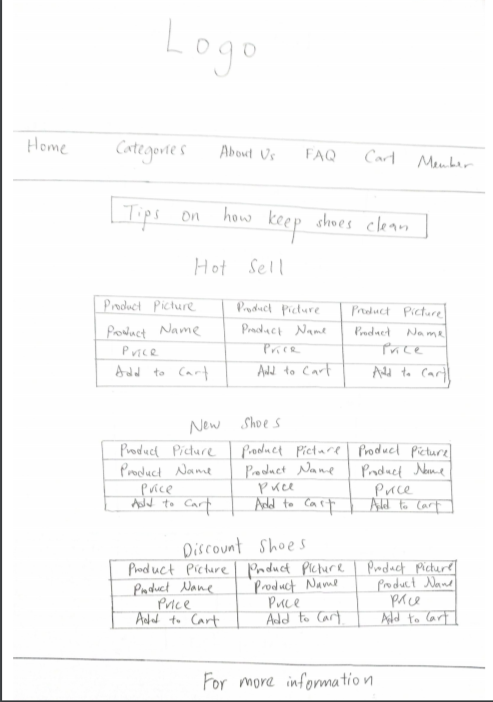 Logo
Home Categories About Us FAQ Cart Member
Tips on how keep shoes clean
Hot Sell
Product Picture Product Picture Product Picture
Product Name Product Name Product Name
Price Price Price
Add to Cart Add to Cart Add to Cart
New Shoes
Product Picture Product Picture Product Picture
Product Name Product Name Product Name
Price Price Price
Add to Cart Add to Cart Add to Cart
Discount Shoes
Product Picture Product Picture Product Picture
Product Name Product Name Product Name
Price Price Price
Add to Cart Add to Cart Add to Cart
For more information